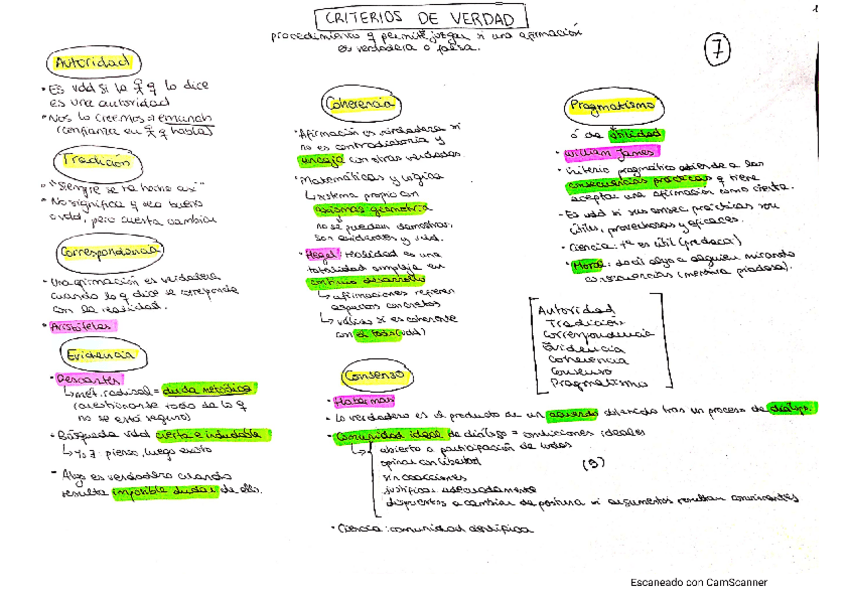 CRITERIOS DE VERDAD
procedimiento q permite juzgar si una afirmación
es verdadera o falsa.
1
7
Autoridad
• Es vdd si la q lo dice
es una autoridad
• Nos lo creemos: emanan
confianza en q habla
Tradición
• "Siempre se ha hecho así"
• No significa q sea bueno
o vdd, pero cuesta cambiar
Correspondencia
• Una afirmación es verdadera
cuando lo q dice se corresponde
con la realidad.
• Aristóteles
Evidencia
• Descartes
↳ met. radical = duda metódica
cuestionarse todo de lo q
no se esté seguro
• Búsqueda vdd cierta e indudable
↳ pienso, luego existo
- Algo es verdadero cuando
resulta imposible dudar de ello.
Coherencia
• Afirmación es verdadera si
no es contradictoria y
encaja con otras verdades.
• Matemáticas y lógica
↳ sistema propio con
axiomas geometría
no se pueden demostrar,
son evidentes y vdd.
• Hegel: realidad es una
totalidad compleja en
continuo desarrollo
↳ afirmaciones refieren
aspectos concretos
↳ válidas si es coherente
con el todo (vdd)
Consenso
• Habermas
• Lo verdadero es el producto de un acuerdo obtenido tras un proceso de diálogo.
• Comunidad ideal de diálogo = condiciones ideales
↳ abierto a participación de todos
opinar con libertad
sin coacciones
justificar adecuadamente
dispuestos a cambiar de postura si argumentos resultan convincentes
(5)
• Ciencia: comunidad científica
Pragmatismo
ó de utilidad
• William James
• Criterio pragmático atiende a las
consecuencias prácticas q tiene
aceptar una afirmación como cierta.
- Es vdd si sus consec. prácticas son
útiles, provechosas y eficaces.
• Ciencia: es útil (predecir)
• Moral: decir algo a alguien mirando
consecuencias (mentira piadosa).
Autoridad
Tradición
Correspondencia
Evidencia
Coherencia
Consenso
Pragmatismo
Escaneado con CamScanner